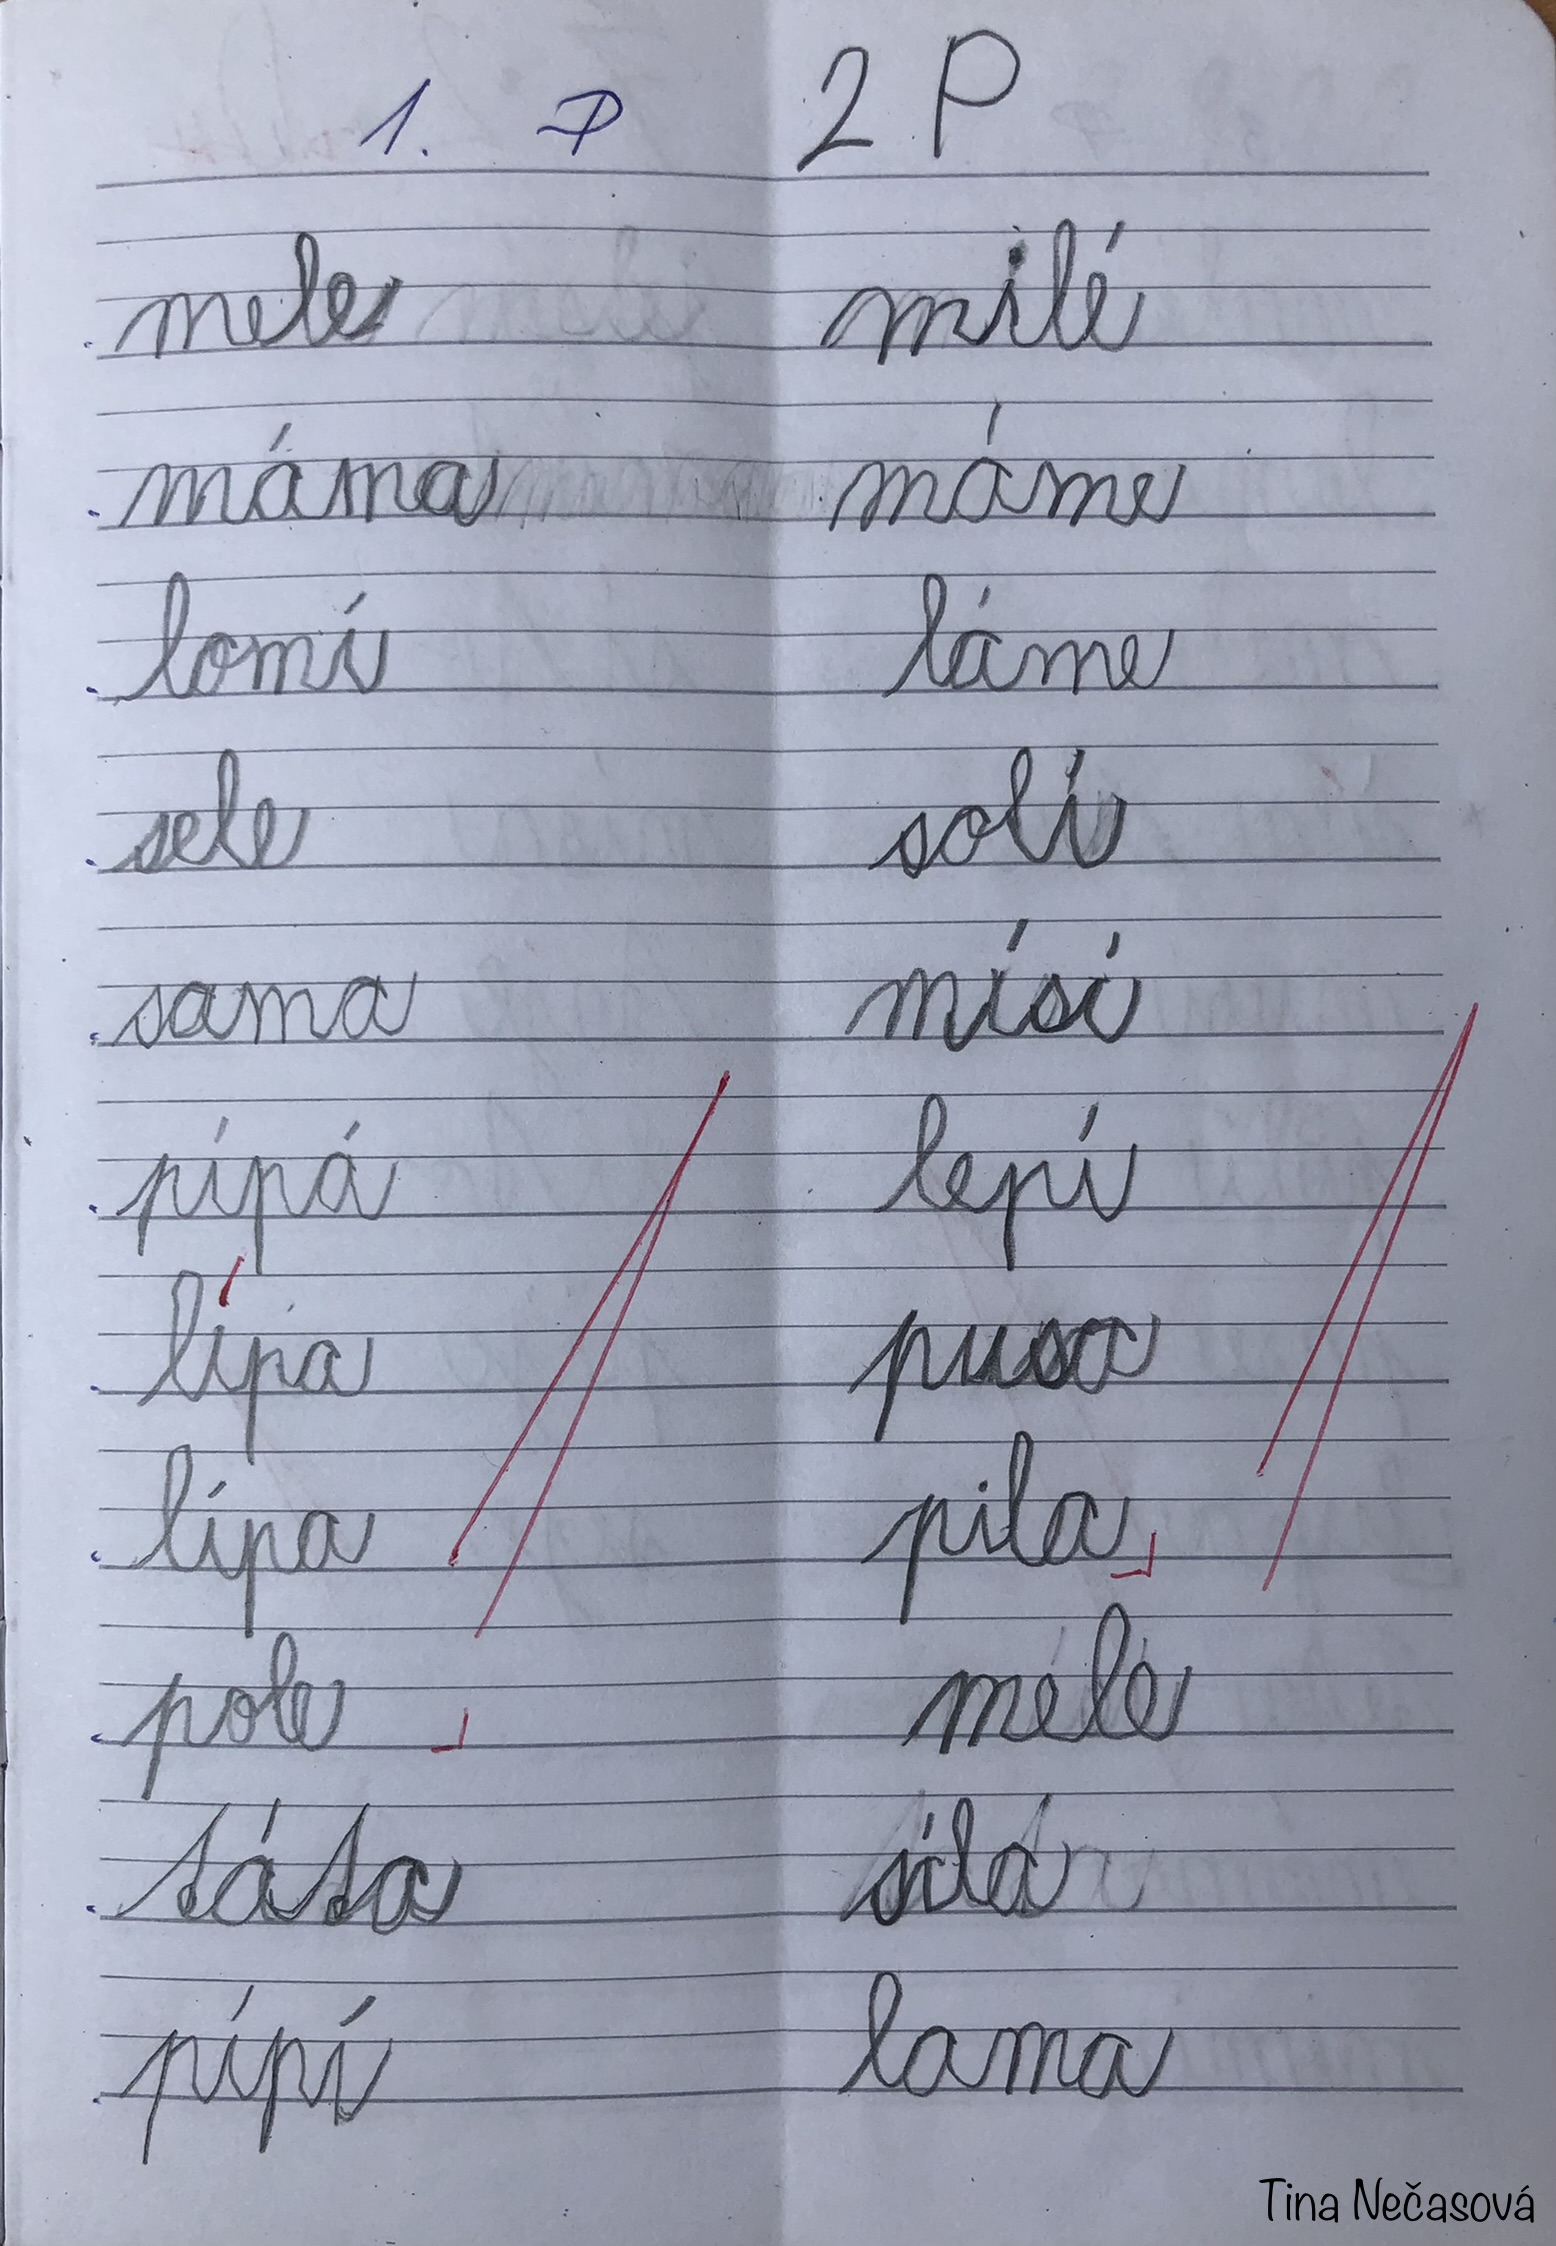 1. P 2 P
mele milé
máma máme
lomí láme
sele solí
sama mísí
pípá lepí
lípa pusa
lípa pila
pole mele
Sása sílá
pípí lama
Tina Nečasová